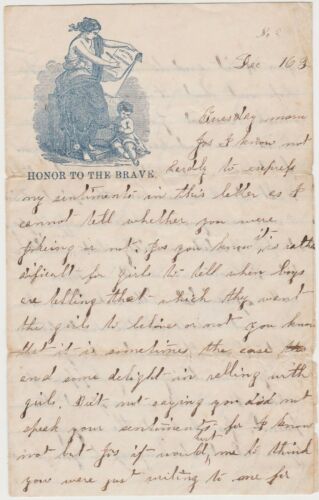 No 2
Dec 163
Tuesday morn
Jos I know not
hardly to express
HONOR TO THE BRAVE.
my sentiments in this letter as I
cannot tell whether you were
jokeing or not Jos you know it is rather
dificult for girls to tell when boys
are telling that which they want
the girls to beleve or not you know
that it is sometimes the case
and some delight in telling with
girls. But not saying you did not
speak your sentiments for I know
not but Jos if would hurt me to think
you were just writing to one for